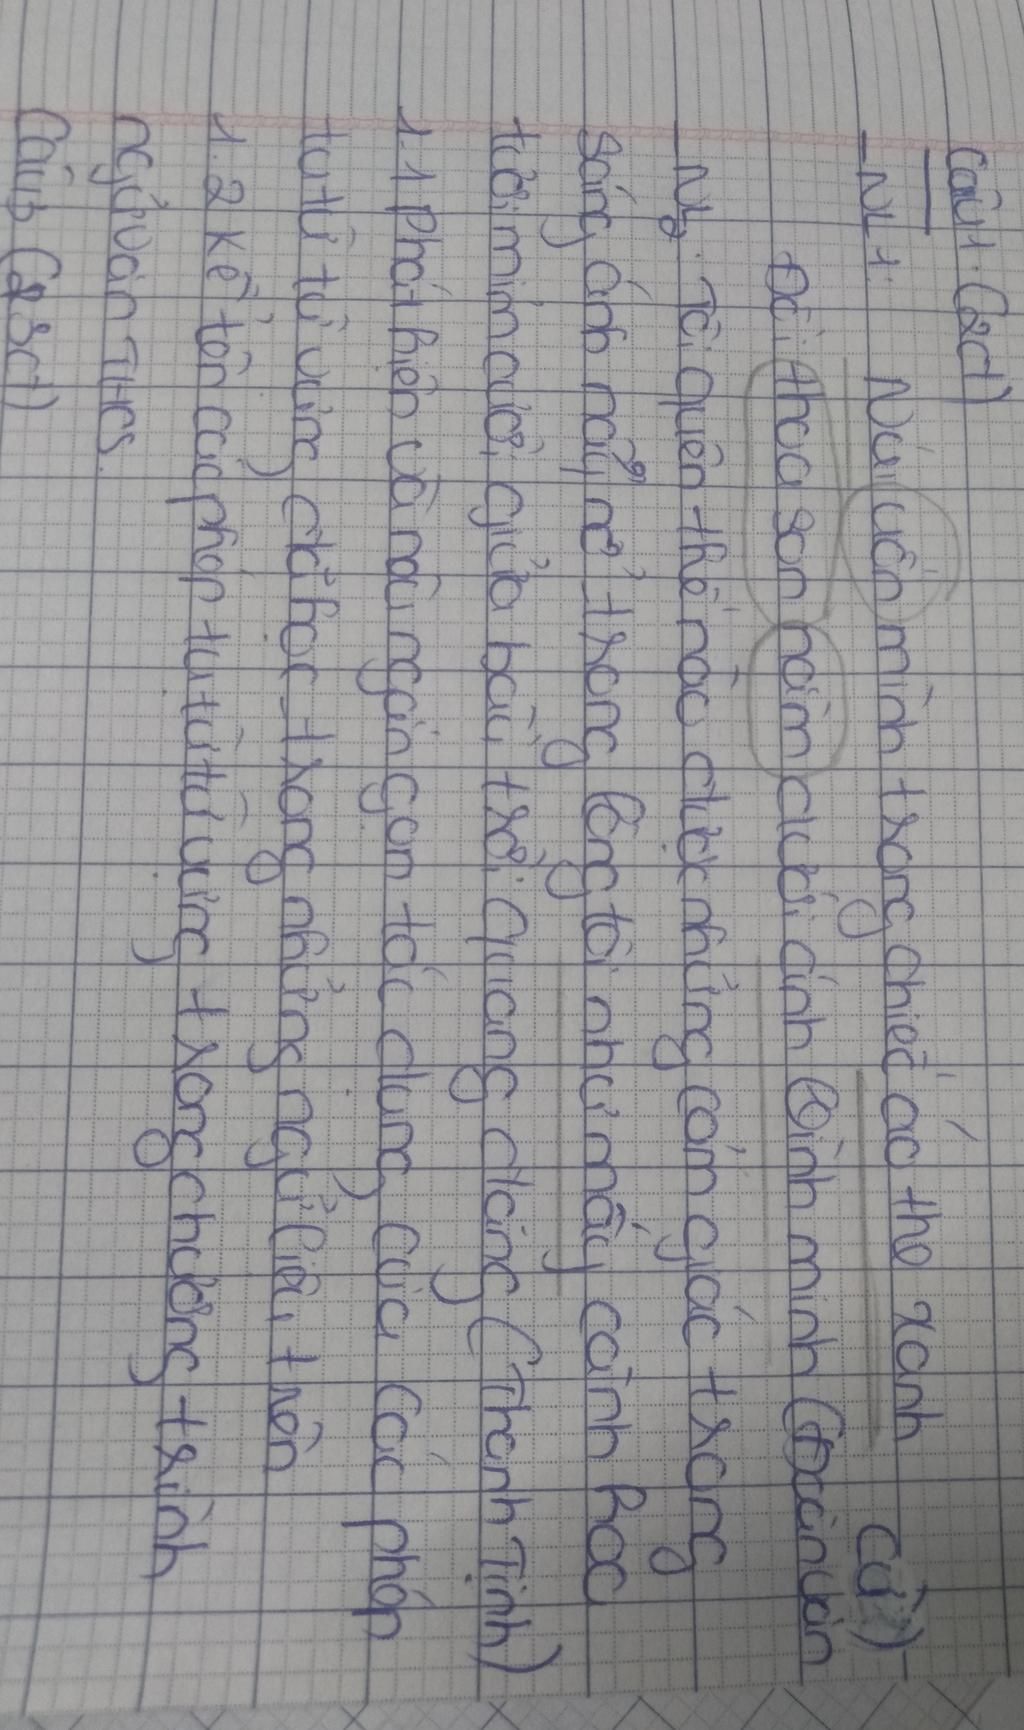 Câu 1. (2đ)
- NL 1: Núi uốn mình trong chiếc áo the xanh
Đồi thoa son nằm dưới ánh bình minh (Đoàn Văn Cừ)
- NL 2: Tôi quên thế nào được những cảm giác trong
sáng ấy nảy nở trong lòng tôi như mấy cành hoa
tươi mỉm cười giữa bầu trời quang đãng (Thanh Tịnh)
1.1 Phát hiện và nói ngắn gọn tác dụng của các phép
tu từ từ vựng đã học trong những ngữ liệu trên
1.2 Kể tên các phép tu từ từ vựng trong chương trình
ngữ văn THCS.